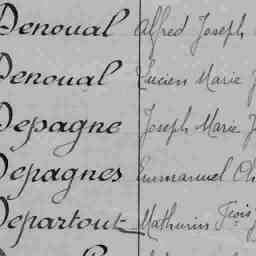 Denoual Alfred Joseph
Denoual Lucien Marie
Depagne Joseph Marie J
Depagnes Emmanuel Ch
Departout Mathurin Fçois J